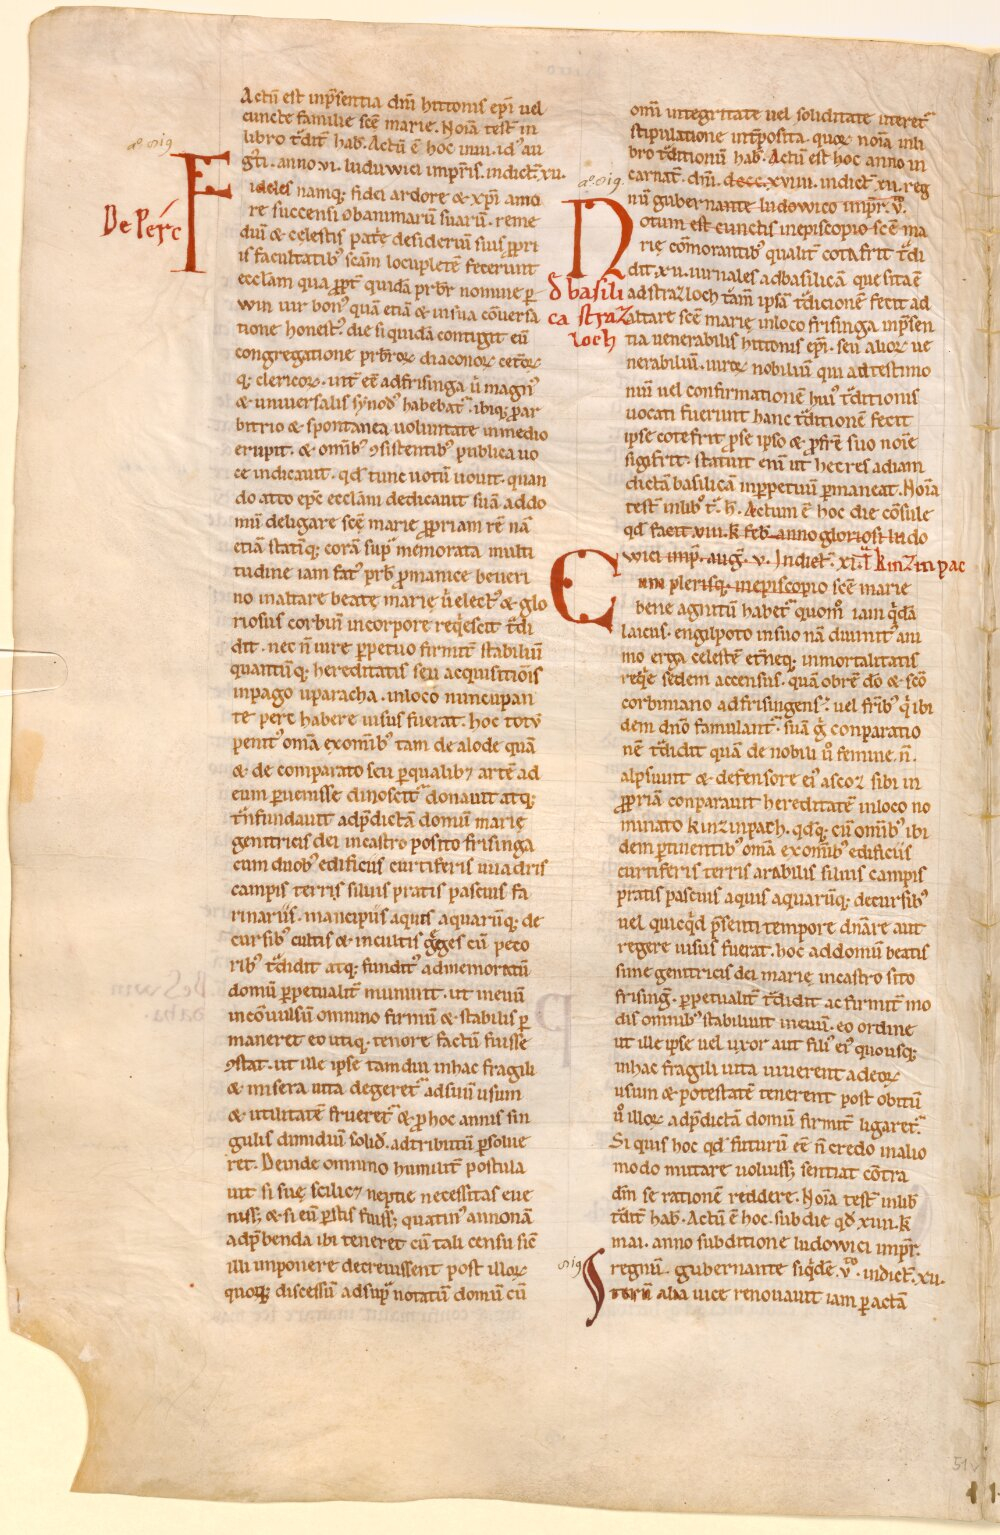 Actū est inp̄sentia dn̄i hittonis ep̄i uel
cuncte familie scē marie. Noīa test̄ in
libro t̄dit̄ hab̄. Actū ē hoc .iiii. id' au
gt̄i. anno .vi. luduwici imp̄ris. indict̄. xu.
De Perc
Fideles namq; fidei ardore & xp̄i amo
re succensi ob animarū suarū. reme
diū & celestis patrię desideriū suis p̄pri
is facultatib' scām locupletē fecerunt
ecclām qua p̄pt̄ quidā prb̄r nomine p̄
win uir bon' quā etiā & in sua cōuersa
tione honest'. die si quidā contigit eū
congregatione prb̄roꝝ diaconoꝝ cet̄oꝝ
q; clericoꝝ. uit̄ eē ad frisinga ū magn'
& uniuersalis synod' habebat̄. ibiq; p̄ar
bitrio & spontanea uoluntate in medio
erupit. & om̄ib' ꝯsistentib' publica uo
ce indicauit. qd̄ tunc uotū uouit. quan
do atto ep̄c ecclām dedicauit suā ad do
mū deligare scē marie p̄priam rē nā
etiā statīq; corā sup̄ memorata multi
tudine iam fat' prb̄ p̄ manice beueri
no in altare beatę marię ū elect' & glo
riosus corbun in corpore req̄escit t̄di
dit. nec n̄ iure p̄petuo firmit̄ stabiliū
quantūq; hereditatis seu acquisitiōis
in pago uparacha. in loco nuncupan
te perc habere uisus fuerat. hoc totū
penit' om̄ā ex om̄ib' tam de alode quā
& de comparato seu p̄ qualib& artē ad
eum p̄uenisse dinoscit̄ donauit atq;
t̄nfundauit ad p̄dictā domū marię
genitricis dei in castro posito frisinga
cum duob' edificiis curtiferis uuadris
campis terris siluis pratis pascuis fa
rinariis. mancipiis aquis aquarūq; de
cursib' cultis & incultis g̅ges cū peco
rib' t̄didit atq; fundit' ad memoratū
domū p̄petualit̄ muniuit. ut in euū
inconuulsū omnino firmū & stabilis p̄
maneret eo utiq. tenore factū fuisse
ꝯstat. ut ille ipse tamdiu in hac fragili
& misera uita degeret̄ ad suū usum
& utilitatē frueret̄ & p̄ hoc annis sin
gulis dimidiū solid̄. ad tributū p̄solue
ret. Deinde omnino humilit̄ postula
uit si suę scilic& neptie necessitas eue
niss; & si eū p̄stis fuiss; quatin' annonā
ad p̄benda ibi teneret cū tali censu sic̄
illi imponere decreuissent post illoꝝ
quoq; discessū ad sup̄ notatū domū cū
om̄i integritate uel soliditate iteret̄
stipulatione int̄posita. quoꝝ noīa in li
bro t̄ditionū hab̄. Actū est hoc anno in
carnat̄. dn̄i. dccc.xviiii. indict̄. xii. reg
nū gubernante ludowico imp̄r. v̄.
Notum est cunctis in episcopio scē ma
rię cōmorantib' qualit̄ cotafrit t̄di
dit. xu. iurnales ad basilicā que sita ē
đ basili
ca straz
loch
ad strazloch tam̄ ipsā t̄dicionē fecit ad
altare scē marię in loco frisinga in p̄sen
tia uenerabilis hittonis ep̄i. seu alioꝝ ue
nerabiliū. uiroꝝ nobiliū qui ad testimo
niū uel confirmationē hui' t̄ditionis
uocati fuerunt hanc t̄ditionē fecit
ipse cotefrit p̄ se ipso & p̄ frē suo noīe
sigifrit. statuit enī ut hec res ad iam
dictā basilicā in p̄petuū p̄maneat. Noīa
test̄ in lib' t̄. h̄. Actum ē hoc die cōsule
qd̄ facit .viii. k̄ feb̄. anno gloriosi ludo
wici imp̄. aug̅. v. Indict̄. xi. t̄ kinzinpac
Cum plerisq. in episcopio scē marie
bene agnitū habet̄ quom̄ iam q̄dā
laicus. engilpoto in suo nā diuinit̄ ani
mo erga celestē et̄neq; inmortalitatis
req̄e sedem accensus. quā obrē dō & scō
corbiniano ad frisingens. uel frīb' q̄ ibi
dem dn̄o famulant̄. suā g̅ conparatio
nē t̄didit quā de nobili ū femine. n̄.
alpsuint & defensore ei' ascoz sibi in
p̄priā conparauit hereditatē in loco no
minato kinzinpach. qd̄q; cū om̄ib' ibi
dem p̄tinentib' om̄ā ex om̄ib' edificiis
curtiferis terris arabilis siluis campis
pratis pascuis aquis aquarūq; decursib'
uel quicq̄d p̄senti tempore dn̄are aut
regere uisus fuerat. hoc ad domū beatis
sime genitricis dei marię in castro sito
frising̅. p̄petualit̄ t̄didit ac firmit̄ mo
dis omnib' stabiliuit in euū. eo ordine
ut ille ipse uel uxor aut filī ei' quousq;
in hac fragili uita uiuerent ad eoꝝ
usum & potestatē tenerent post obitū
ū illoꝝ ad p̄dictā domū firmit̄ ligaret̄.
Si quis hoc qd̄ futurū eē n̄ credo in alio
modo mutare uoluiss; sentiat cōtra
dn̄m se rationē reddere. Noīa test̄ in lib̄
t̄dit̄ hab̄. Actū ē hoc. sub die qd̄ xiiii. k̄
mai. anno sub ditione ludowici imp̄r.
regnū. gubernante siq̄dē. v̄. indict̄. xu.
Iterū alia uice renouauit iam p̄ actā
51v